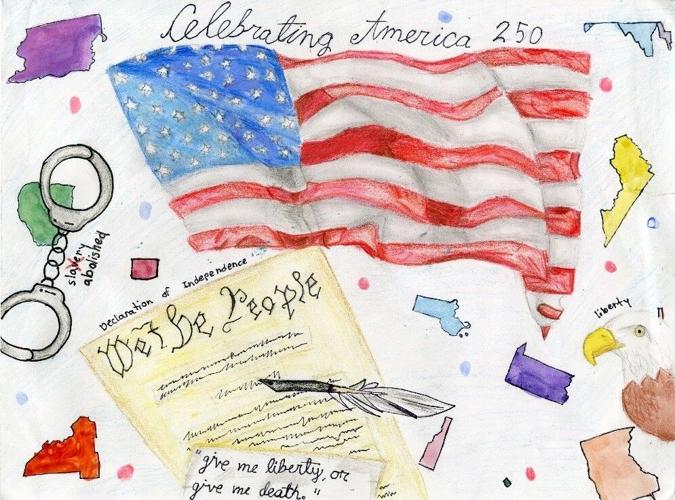 Celebrating America 250
slavery
abolished
Declaration of Independence
We the People
liberty
"give me liberty, or
give me death."